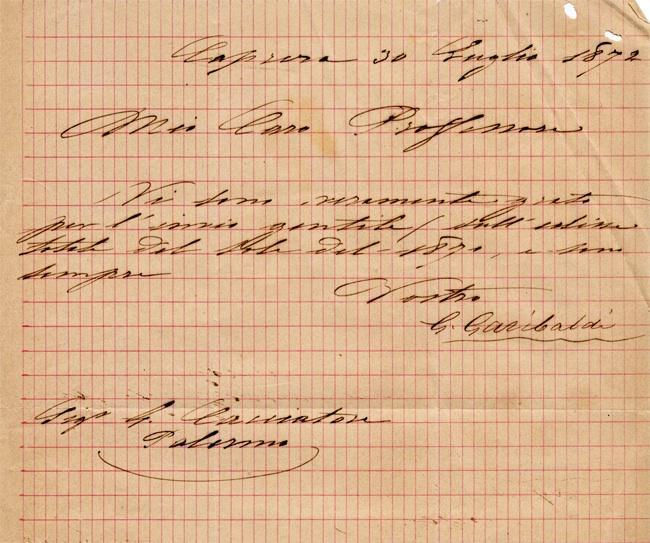 Caprera 30 Luglio 1872
Mio Caro Professore
Vi sono veramente grato
per l'invio gentile, sull'eclisse
totale del Sole del 1870, e sono
sempre
Vostro
G. Garibaldi
Sigr G. Cacciatore
Palermo